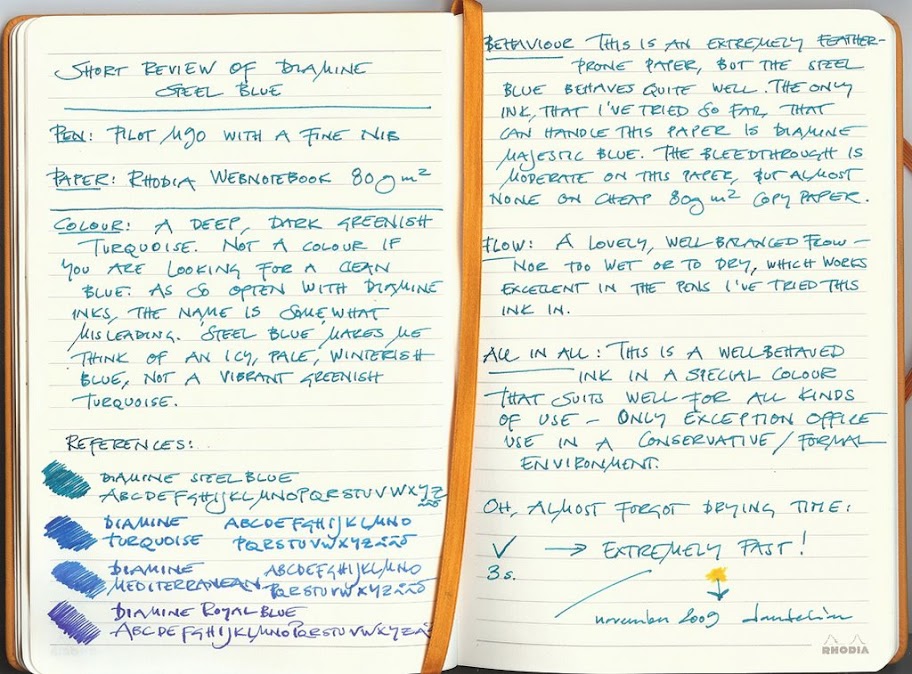 SHORT REVIEW OF DIAMINE
STEEL BLUE
PEN: PILOT M90 WITH A FINE NIB
PAPER: RHODIA WEBNOTEBOOK 80gm²
COLOUR: A DEEP, DARK GREENISH
TURQUOISE. NOT A COLOUR IF
YOU ARE LOOKING FOR A CLEAN
BLUE. AS SO OFTEN WITH DIAMINE
INKS, THE NAME IS SOMEWHAT
MISLEADING. 'STEEL BLUE' MAKES ME
THINK OF AN ICY, PALE, WINTERISH
BLUE, NOT A VIBRANT GREENISH
TURQUOISE.
REFERENCES:
DIAMINE STEEL BLUE
ABCDEFGHIJKLMNOPQRSTUVWXYZ
åäö
DIAMINE ABCDEFGHIJKLMNO
TURQUOISE PQRSTUVWXYZåäö
DIAMINE ABCDEFGHIJKLMNO
MEDITERRANEAN PQRSTUVWXYZåäö
DIAMINE ROYAL BLUE
ABCDEFGHIJKLMNOPQRSTUVWXYZåäö
BEHAVIOUR THIS IS AN EXTREMELY FEATHER-
PRONE PAPER, BUT THE STEEL
BLUE BEHAVES QUITE WELL. THE ONLY
INK, THAT I'VE TRIED SO FAR, THAT
CAN HANDLE THIS PAPER IS DIAMINE
MAJESTIC BLUE. THE BLEEDTHROUGH IS
MODERATE ON THIS PAPER, BUT ALMOST
NONE ON CHEAP 80gm² COPY PAPER.
FLOW: A LOVELY, WELL-BALANCED FLOW –
NOR TOO WET OR TO DRY, WHICH WORKS
EXCELLENT IN THE PENS I'VE TRIED THIS
INK IN.
ALL IN ALL: THIS IS A WELLBEHAVED
INK IN A SPECIAL COLOUR
THAT SUITS WELL FOR ALL KINDS
OF USE – ONLY EXCEPTION OFFICE
USE IN A CONSERVATIVE/FORMAL
ENVIRONMENT.
OH, ALMOST FORGOT DRYING TIME:
✓ → EXTREMELY FAST!
3 s.
november 2009 dandelion
RHODIA